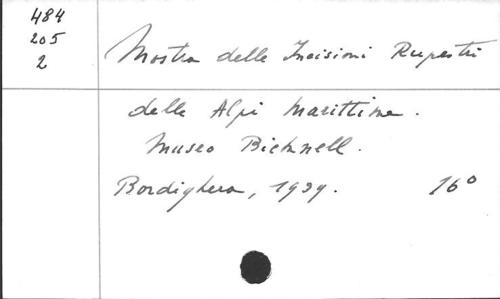 484
205
2
Mostra delle Incisioni Rupestri
delle Alpi Marittime.
Museo Bicknell.
Bordighera, 1939.
16°